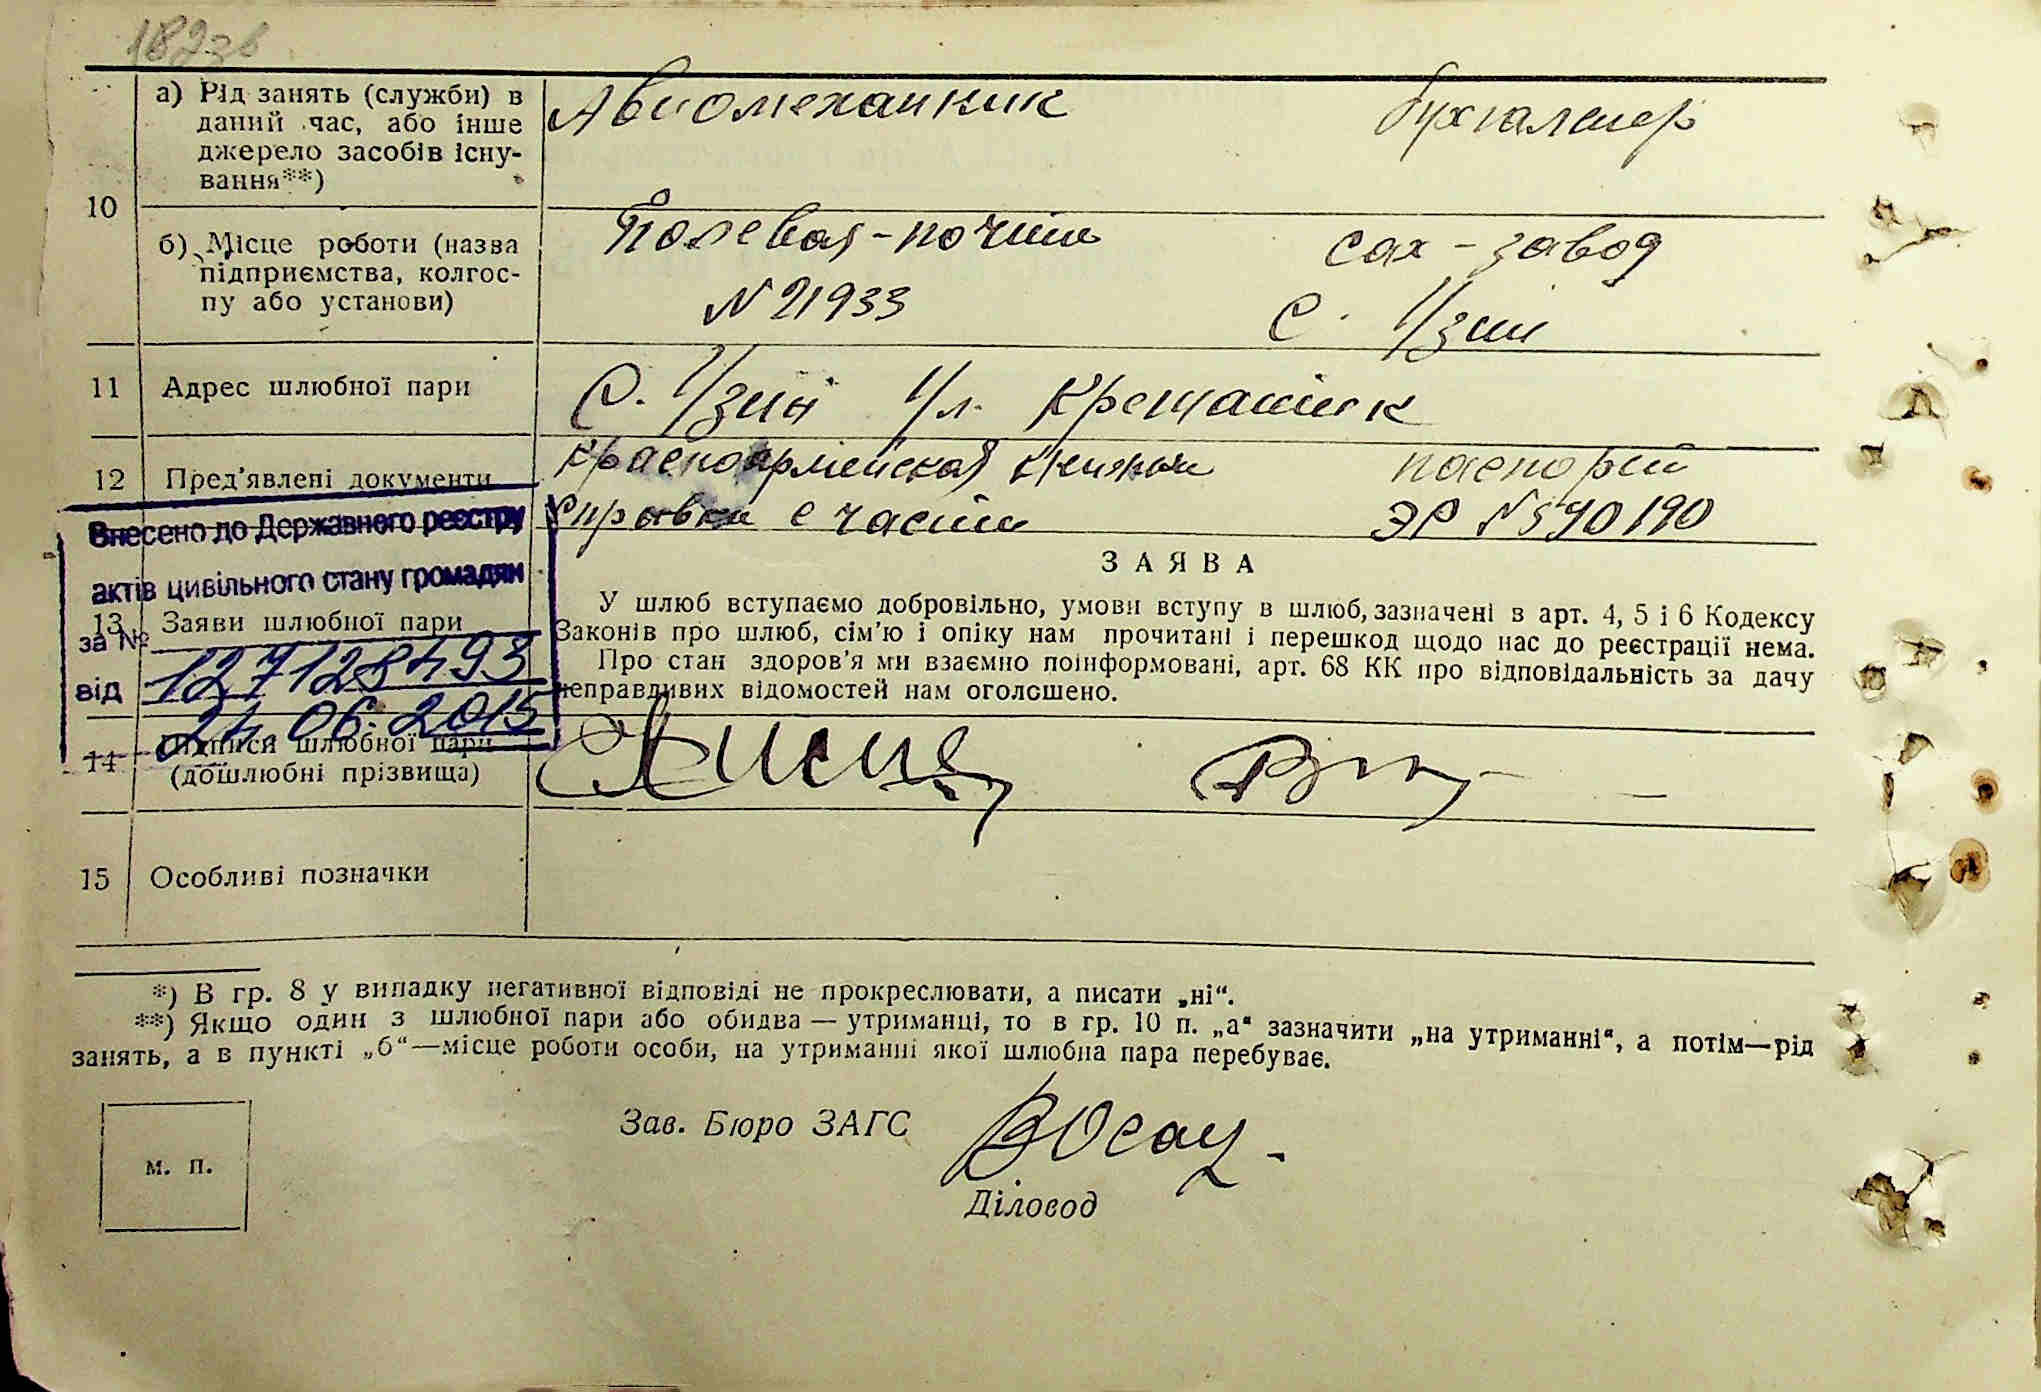 182зв
а) Рід занять (служби) в
даний час, або інше
джерело засобів існу-
вання**)
Авиомеханник
бухгалтер
10
б) Місце роботи (назва
підприємства, колгос-
пу або установи)
Полевая-почта
N 21933
сах-завод
с. Узин
11
Адрес шлюбної пари
С. Узин Ул. Крещатик
12
Пред'явлені документи
Красноармейская книжка
Справка с части
паспорт
ЭР N 590190
Внесено до Державного реєстру
актів цивільного стану громадян
за №
127128493
від
24.06.2015
ЗАЯВА
13
Заяви шлюбної пари
У шлюб вступаємо добровільно, умови вступу в шлюб, зазначені в арт. 4, 5 і 6 Кодексу
Законів про шлюб, сім'ю і опіку нам прочитані і перешкод щодо нас до реєстрації нема.
Про стан здоров'я ми взаємно поінформовані, арт. 68 КК про відповідальність за дачу
неправдивих відомостей нам оголошено.
14
Підписи шлюбної пари
(дошлюбні прізвища)
15
Особливі позначки
*) В гр. 8 у випадку негативної відповіді не прокреслювати, а писати „ні“.
**) Якщо один з шлюбної пари або обидва — утриманці, то в гр. 10 п. „а“ зазначити „на утриманні“, а потім—рід
занять, а в пункті „б“—місце роботи особи, на утриманні якої шлюбна пара перебуває.
Зав. Бюро ЗАГС
м. п.
Діловод